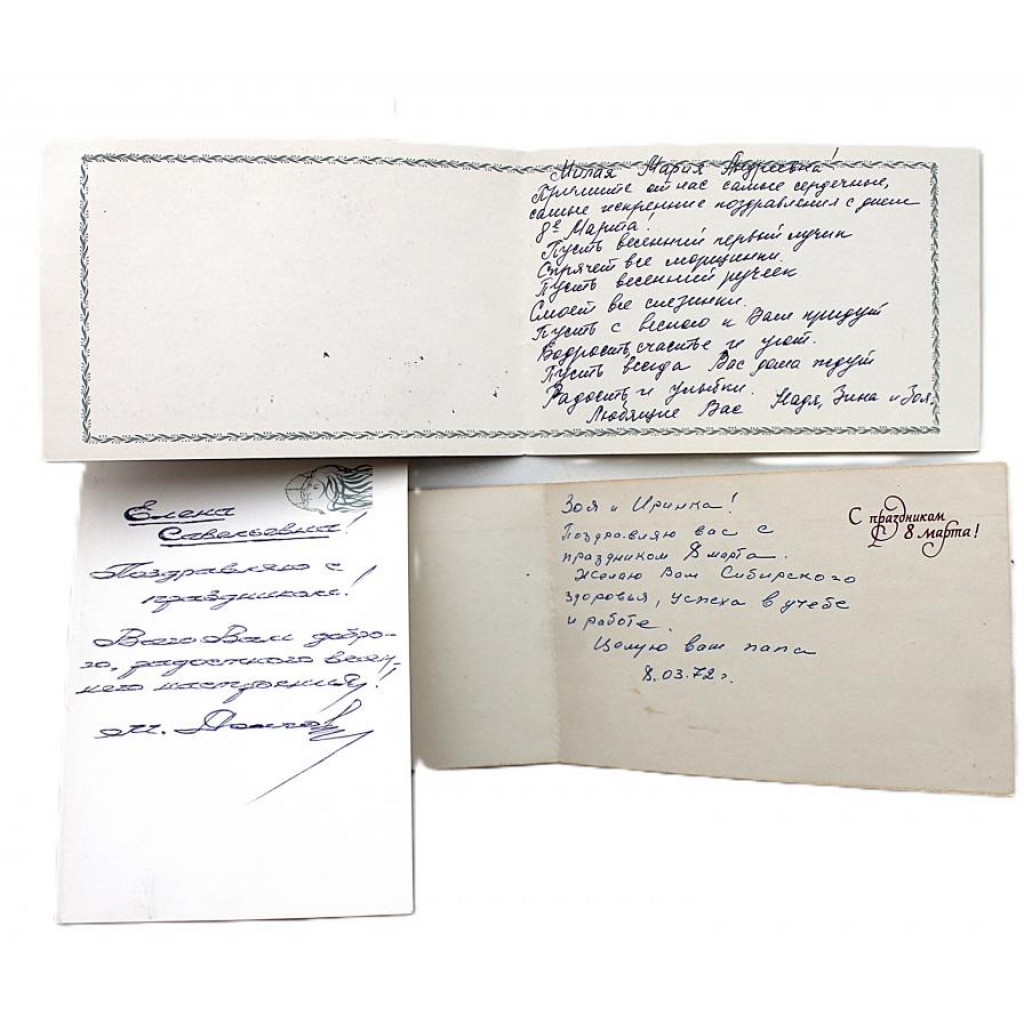 Милая Мария Андреевна!
Примите от нас самые сердечные,
самые искренние поздравления с днем
8е Марта!
Пусть весенний первый лучик
Спрячет все морщинки.
Пусть весенний ручеек
Смоет все слезинки.
Пусть с весною к Вам придут
Бодрость, счастье и уют.
Пусть всегда Вас дома ждут
Радость и улыбки.
Любящие Вас Надя, Зина и Зоя.
Елена
Савельевна!
Поздравляю с
праздником!
Всего Вам добро-
го, радостного весен-
него настроения!
Зоя и Иринка!
Поздровляю вас с
праздником 8 марта.
Желаю Вам Сибирского
здоровья, успеха в учебе
и работе.
Целую ваш папа
8.03.72г.
С праздником
8 марта!